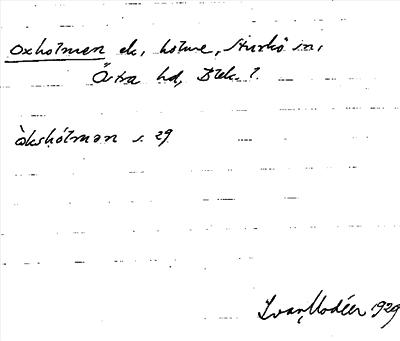 Oxholmen ek, holme, Sturkö sn,
Östra hd, Blek. l.
òkshólmən s. 29
Ivar Modéer 1929